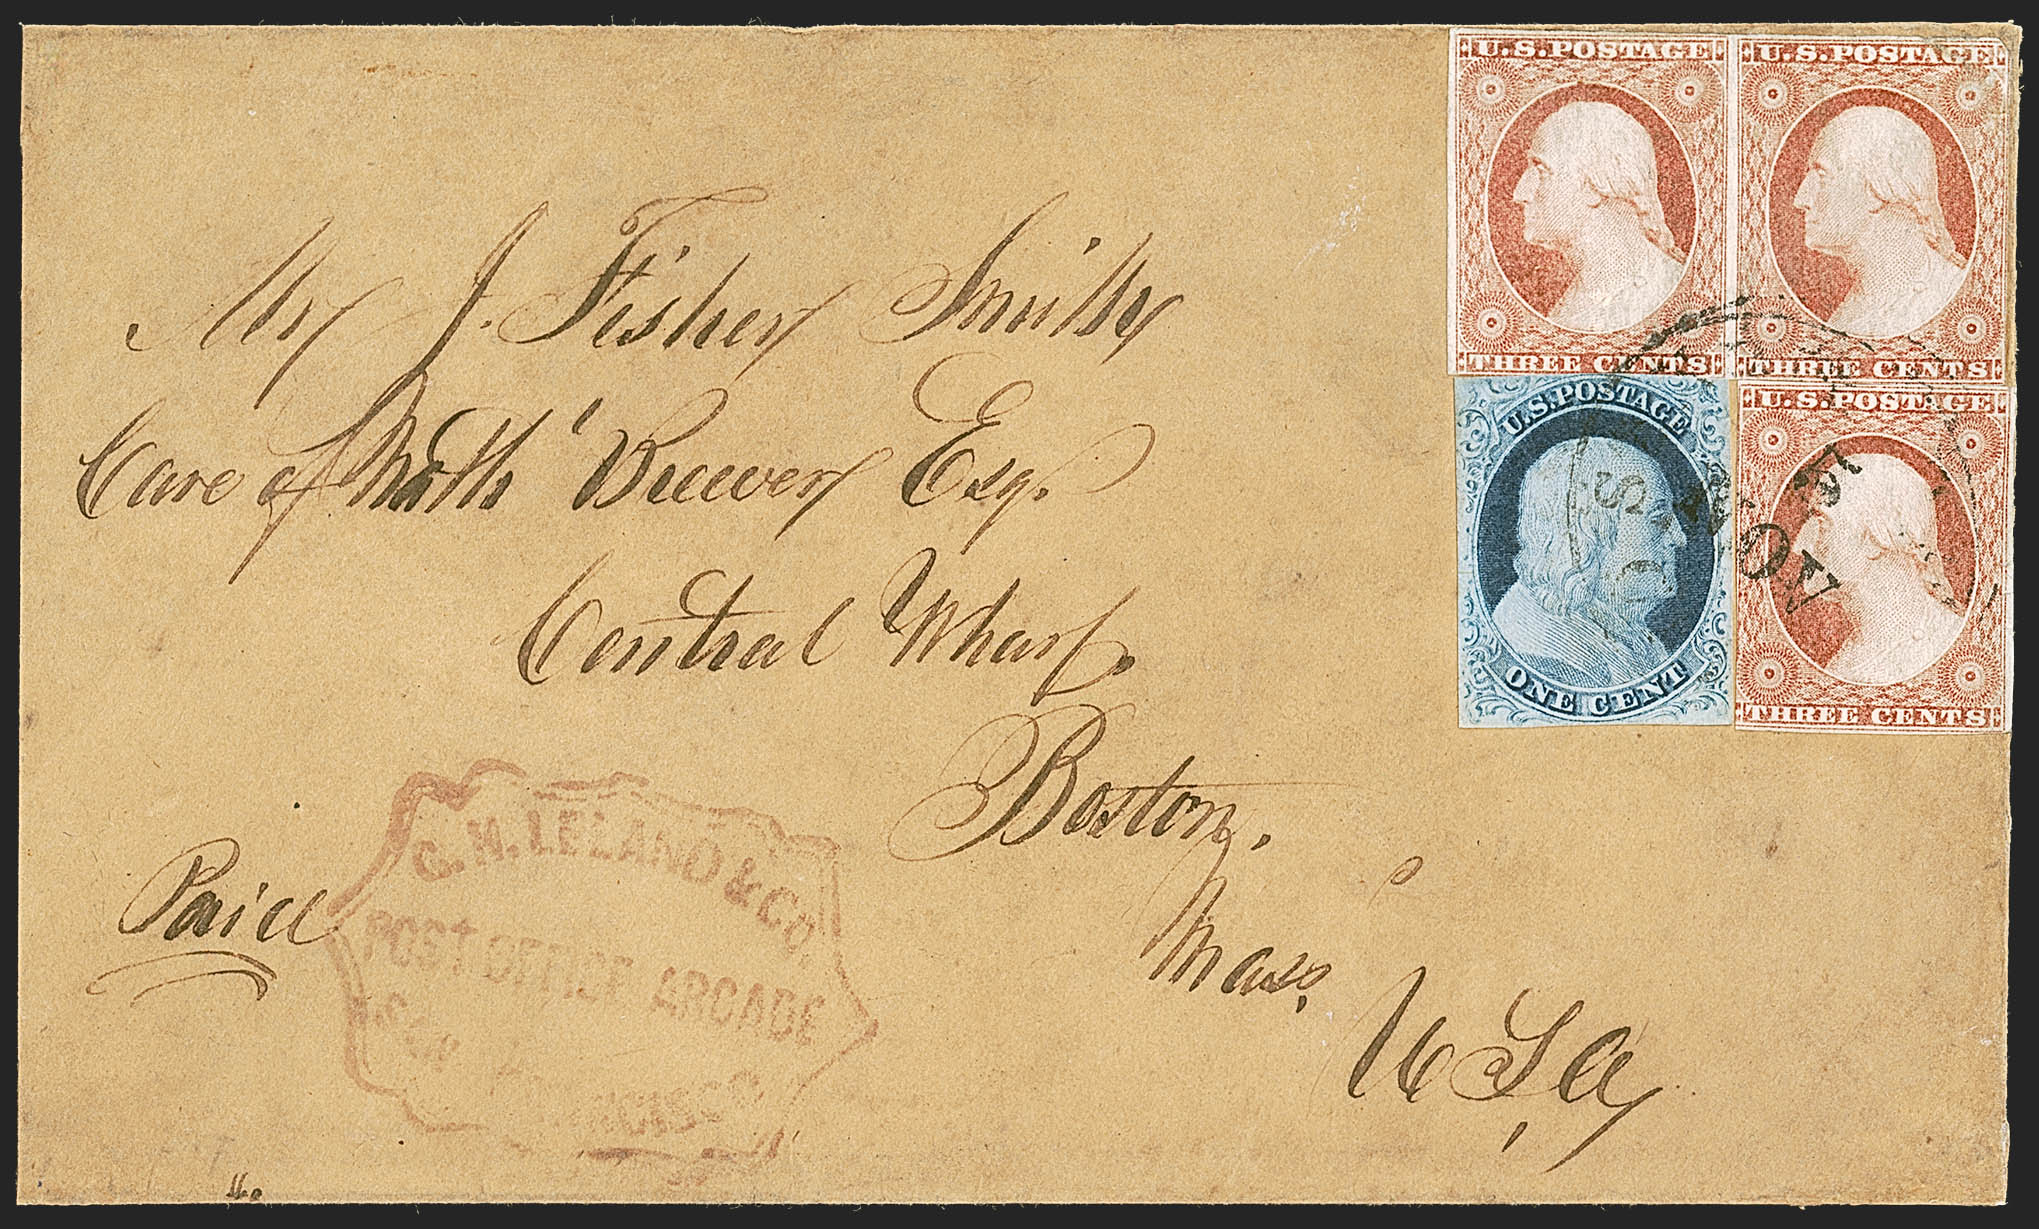 U.S. POSTAGE
THREE CENTS
U.S. POSTAGE
THREE CENTS
U.S. POSTAGE
ONE CENT
U.S. POSTAGE
THREE CENTS
NOV
5
Mr J. Fisher Smith
Care of Nath' Brewer Esq.
Central Wharf.
Boston,
Mass,
U S, A
Paid
G. N. LELAND & CO.
POST OFFICE ARCADE
SAN FRANCISCO